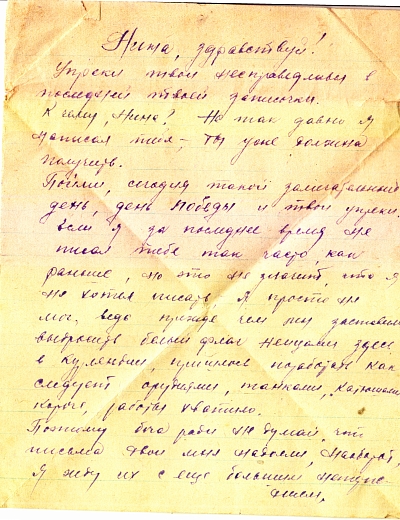 Нина, здравствуй!
Упреки твои несправедливы в
последней твоей записочки.
К чему, Нина? Не так давно я
написал тебе – ты уже должна
получить.
Пойми, сегодня такой замечательный
день, день победы и твои упреки.
Если я за последнее время не
писал тебе так часто, как
раньше, но это не значит, что я
не хотел писать, я просто не
мог, ведь прежде чем мы заставили
выбросить белый флаг немцами здесь
в Курляндии, пришлось поработать как
следует орудиями, танками, Катюшами
короче, работы хватило.
Поэтому бога ради не думай, что
письма твои мне надоели, наоборот,
я жду их с еще большим нетерпе
нием,